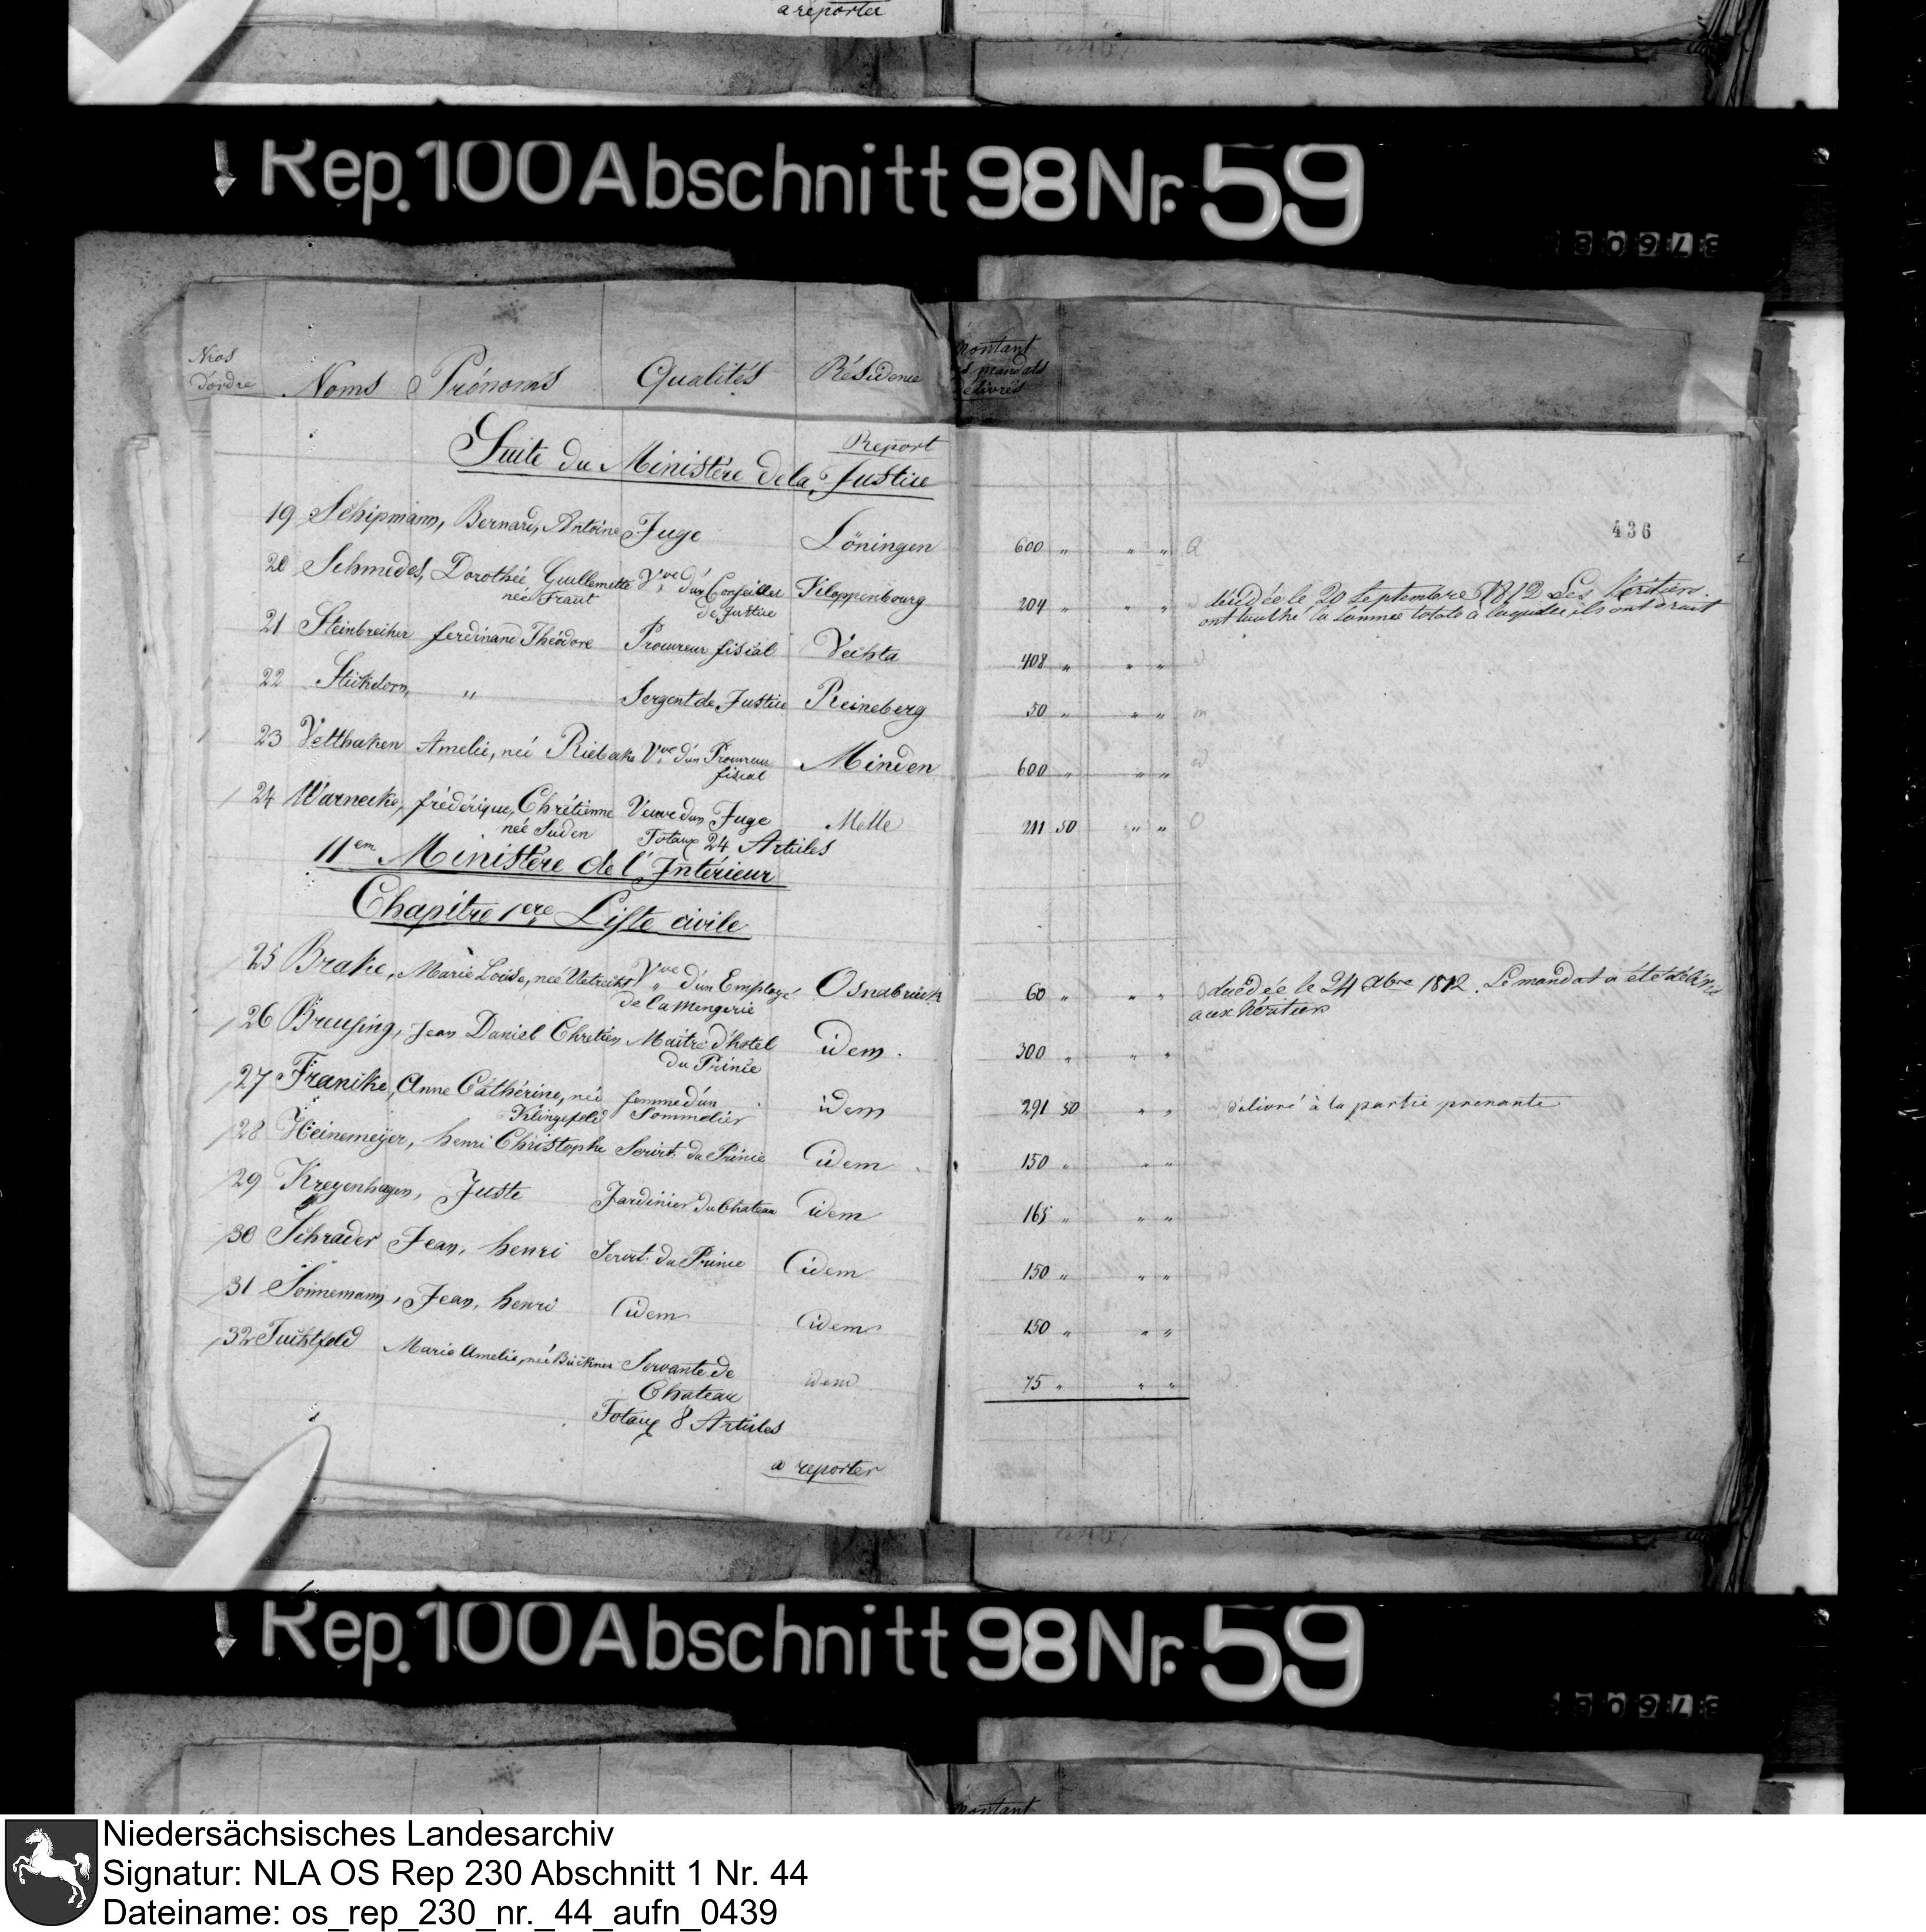 a reporter
Rep. 100 Abschnitt 98 Nr. 59
Nros d'ordre Noms Prénoms Qualités Résidence Montant mandats délivrés
Report
Suite du Ministère de la Justice
436
19 Schipmann, Bernard, Antoine Juge Löningen 600 " " "
20 Schmedes, Dorothée Guillemette Vve d'un Conseiller Kloppenbourg 204 " " " décédée le 20 Septembre 1812 Les héritiers
née Fraut de Justice ont touché la somme totale à laquelle ils ont droit
21 Steinbreiher ferdinand Théodore Procureur fiscal Vechta 408 " " "
22 Stickdorn, " Sergent de Justice Reineberg 50 " " "
23 Velthaken Amelie, neé Riebake Vve d'un Procureur Minden 600 " " "
fiscal
24 Warnecke, frédérique, Chrétienne Veuve d'un Juge Melle 211 50 " "
neé Suden Totaux 24 Articles
11em Ministère de l'Intérieur
Chapitre 1ere Liste civile
25 Brake, Marie Louise, neé Vve d'un Employé Osnabrück 60 " " " décédée le 24 Xbre 1812. Le mandat a été délivré
de la Mengerie aux héritiers
26 Breusing, Jean Daniel Chretien Maitre d'hotel idem. 300 " " "
du Prince
27 Franike, Anne Cathérine, neé femme d'un idem 291 50 " " délivré à la partie prenante
Klingefeld Sommelier
28 Heinemeyer, henri Christophe Servt. du Prince idem 150 " " "
29 Kreyenhagen, Juste Jardinier du Chateau idem 165 " " "
30 Schrader Jean, henri Servt. du Prince idem 150 " " "
31 Sonnemann, Jean, henri idem idem 150 " " "
32 Tuchtfeld Marie Amelie, neé Bückner Servante de idem 75 " " "
Chateau
Totaux 8 Articles
a reporter
Rep. 100 Abschnitt 98 Nr. 59
Montant
Niedersächsisches Landesarchiv
Signatur: NLA OS Rep 230 Abschnitt 1 Nr. 44
Dateiname: os_rep_230_nr._44_aufn_0439